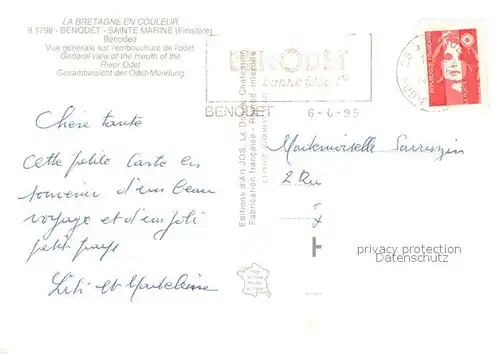 LA BRETAGNE EN COULEUR
9.1798 - BENODET - SAINTE MARINE (Finistère)
Benoded
Vue générale sur l'embouchure de l'odet
General view of the mouth of the
River Odet
Gesamtansicht der Odet-Mündung
BENODET
BENODET 6-6-95
Chère tante
Cette petite carte en
souvenir d'un beau
voyage et d'un joli
petit pays
Lili et Madeleine
Editions d'Art JOS, Le Doaré, Châteaulin
Fabrication française - Reproduction interdite
REPUBLIQUE FRANÇAISE
LA POSTE
Mademoiselle Sarrazin
2 Rue
privacy protection
Datenschutz